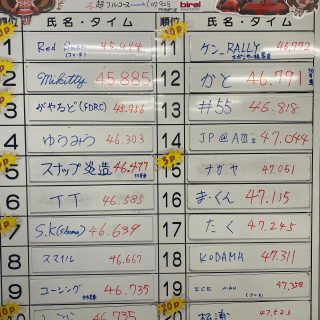 超フルコース
birel
順位 氏名・タイム
1 Red 45.494
2 Mikitty 45.885
3 がやるど(FDRC) 45.956
4 ゆうみつ 46.303
5 スナップ炎造 46.477
6 TT 46.585
7 S.K 46.639
8 スマイル 46.667
9 コージング 46.735
順位 氏名・タイム
11 ケン_RALLY 46.772
12 かと 46.791
13 #55 46.818
14 JP@AIII's 47.044
15 ナガヤ 47.051
16 まーくん 47.115
17 たく 47.245
18 KODAMA 47.311
19 ICE MAN 47.358
47.523